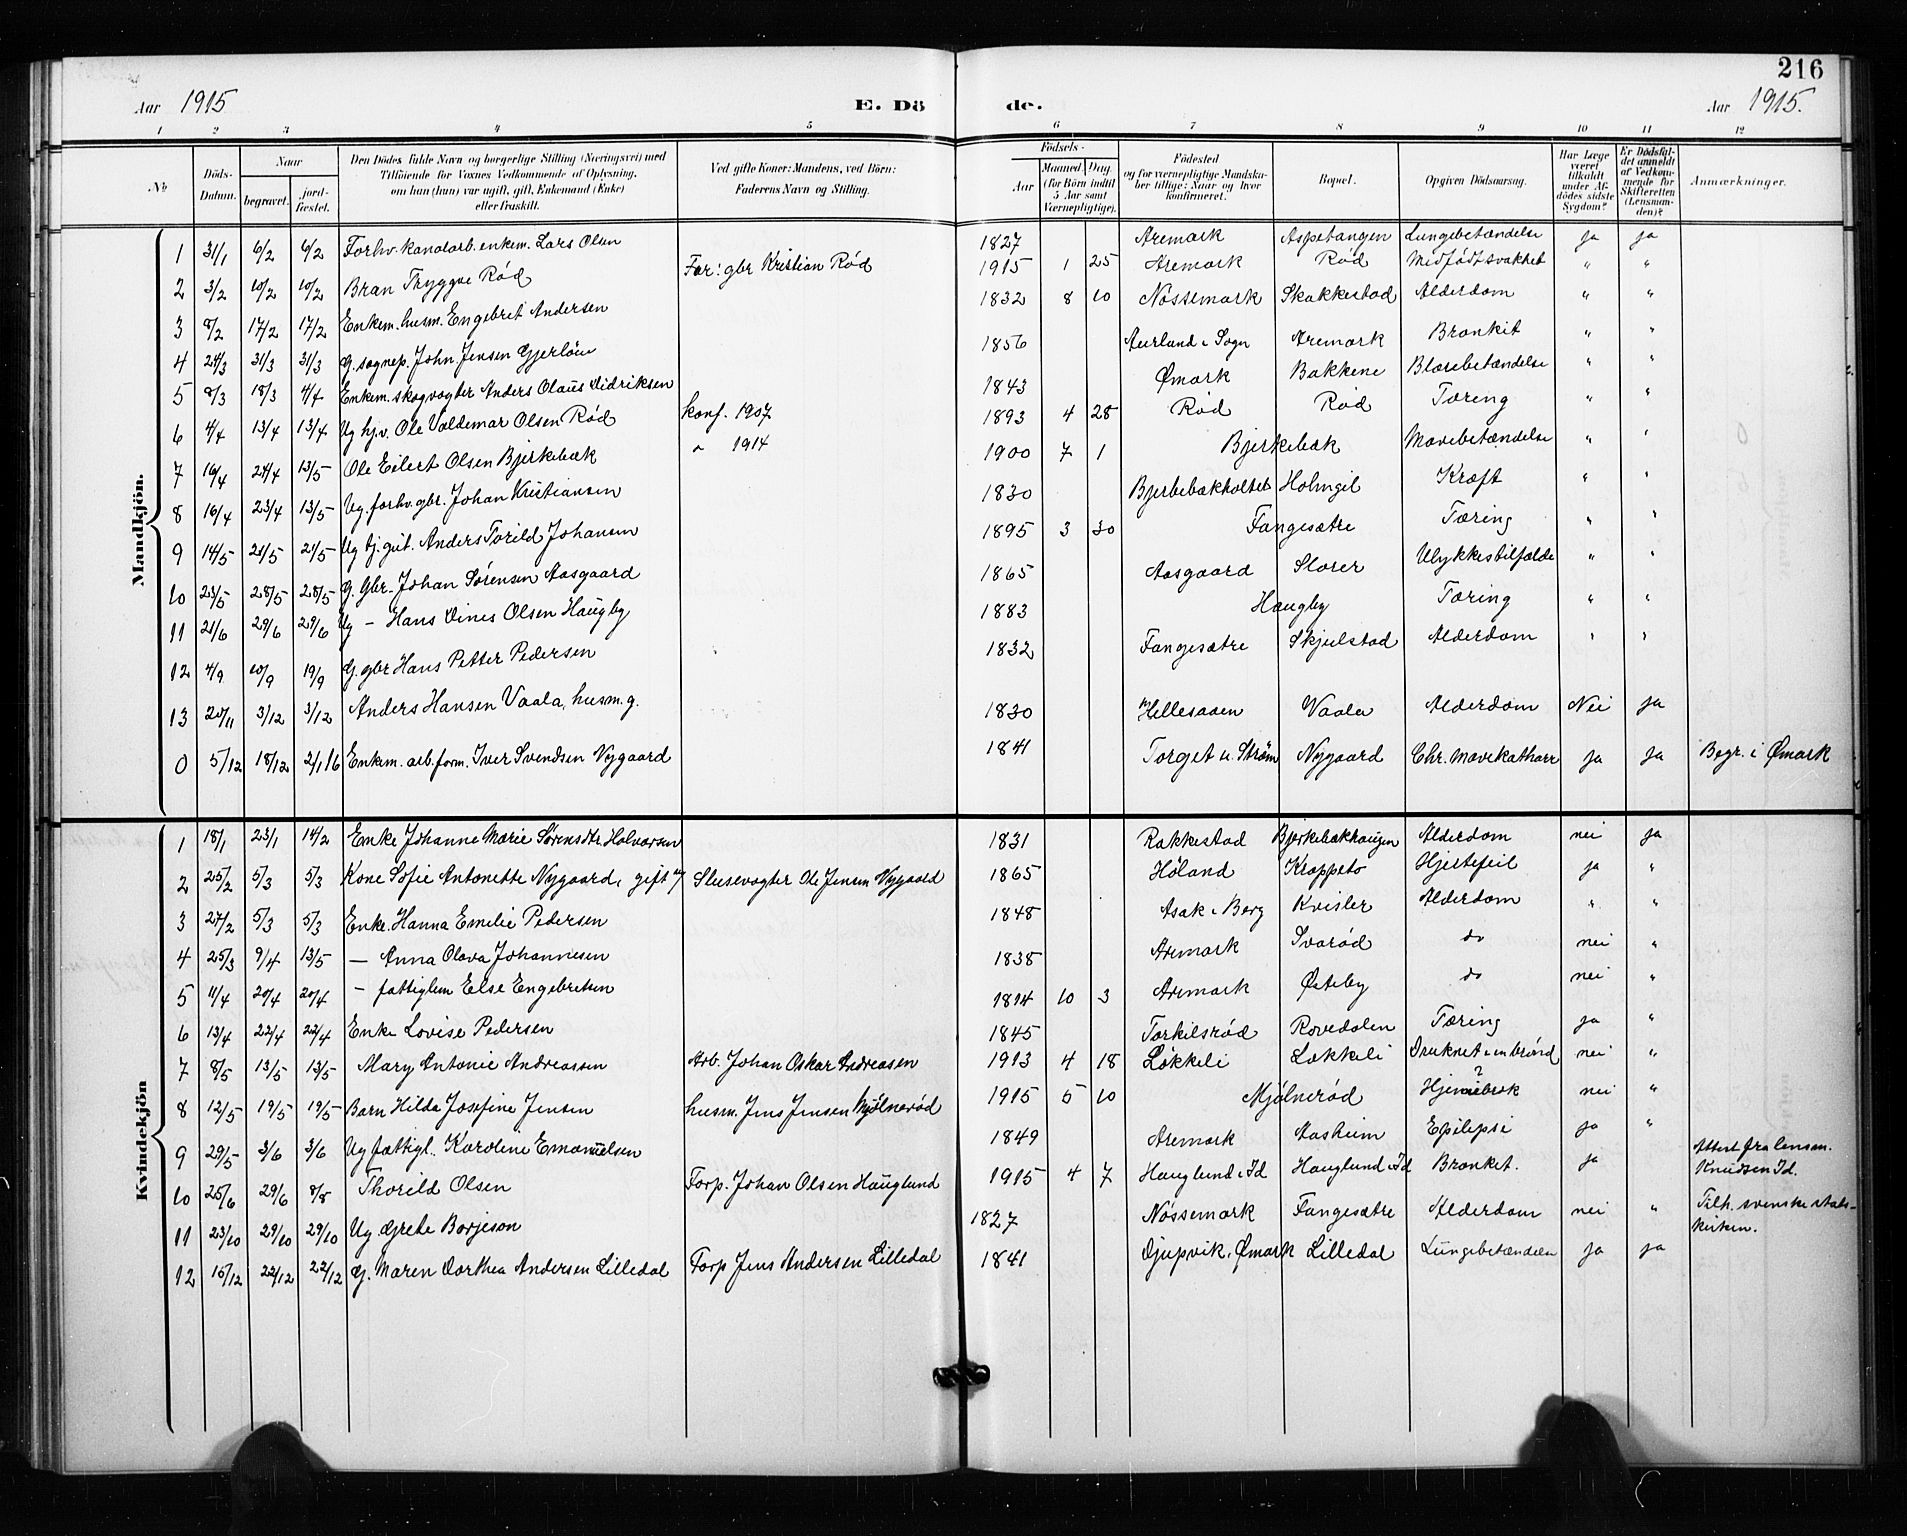 216
Aar 1915 E. Döde. Aar 1915.
1 2 3 4 5 6 7 8 9 10 11 12
No
Döds-Datum.
Naar begravet. jordfæstet.
Den Dödes fulde Navn og borgerlige Stilling (Næringsvei) med Tilföiende for Voxnes Vedkommende af Oplysning, om han (hun) var ugift, gift, Enkemand (Enke) eller fraskilt.
Ved gifte Koner: Mandens, ved Börn: Faderens Navn og Stilling.
Födsels- Aar Maaned. Dag. (for Börn indtil 5 Aar samt Værnepligtige).
Födested og for værnepligtige Mandskaber tillige: Naar og hvor konfirmeret.
Bopæl.
Opgiven Dödsaarsag.
Har Læge været tilkaldt under Afdödes sidste Sygdom?
Er Dödsfaldet anmeldt af Vedkommende for Skifteretten (Lensmanden)?
Anmærkninger.
Mandkjön.
1 31/1 6/2 6/2 Forhv. kanalarb. enkem. Lars Olsen 1827 Aremark Aspetangen Lungebetændelse ja ja
2 3/2 10/2 10/2 Bran Thryggve Rød Far: gbr Kristian Rød 1915 1 25 Aremark Rød Medfødt svakhet " "
3 8/2 17/2 17/2 Enkem. husm. Engebret Andersen 1832 8 10 Nøssemark Skakkestad Alderdom " "
4 24/3 31/3 31/3 G. sognep. John Jensen Gjerløw 1856 Aurland i Sogn Aremark Bronkit " "
5 8/3 18/3 4/4 Enkem. skogvogter Anders Olaus Didriksen 1843 Ømark Bakkene Blærebetændelse " "
6 4/4 13/4 13/4 Ug hj.v. Ole Valdemar Olsen Rød konf. 1907 1893 4 28 Rød Rød Tæring " "
7 16/4 24/4 13/5 Ole Eilert Olsen Bjerkebæk " 1914 1900 7 1 Bjerkebæk Mavebetændelse " "
8 16/4 23/4 13/5 Ug. forhv. gbr. Johan Kristiansen 1830 Bjerbebækholtet Holmgil Kræft " "
9 14/5 21/5 21/5 Ug tj.gut. Anders Torild Johansen 1895 3 30 Fangesætre Tæring " "
10 23/5 28/5 28/5 G. Gbr. Johan Sørensen Aasgaard 1865 Aasgaard Slorer Ulykkestilfælde " "
11 21/6 29/6 29/6 Ug – Hans Dines Olsen Haugby 1883 Haugby Tæring " "
12 4/9 10/9 19/9 G. gbr Hans Petter Pedersen 1832 Fangesætre Skjulstad Alderdom " "
13 20/11 3/12 3/12 Anders Hansen Vaala, husm. g. 1830 Hillesaaen Vaala Alderdom Nei ja
0 5/12 18/12 2/1 16 Enkem. arb.form. Iver Svendsen Nygaard 1841 Torget u. Strøm Nygaard Chr. mavekatharr ja ja Begr. i Ømark
Kvindekjön
1 18/1 23/1 14/2 Enke Johanne Marie Sørensdtr. Halvorsen 1831 Rakkestad Bjerkebækhaugen Alderdom nei ja
2 25/2 5/3 5/3 Kone Sofie Antonette Nygaard, gift m/ Slusevogter Ole Jensen Nygaard 1865 Høland Krappeto Hjertefeil ja "
3 27/2 5/3 5/3 Enke. Hanna Emilie Pedersen 1848 Asak i Berg Kvisler Alderdom " "
4 25/3 9/4 13/5 – Anna Olava Johannesen 1838 Aremark Svarød do nei "
5 11/4 20/4 20/4 – fattiglem Else Engebretsen 1814 10 3 Aremark Østeby do nei "
6 13/4 22/4 22/4 Enke Lovise Pedersen 1845 Torkilsrød Rovedalen Tæring ja "
7 8/5 13/5 13/5 Mary Antonie Andreassen Arb. Johan Oskar Andreasen 1913 4 18 Løkkeli Løkkeli Druknet i en brønd nei "
8 12/5 19/5 19/5 Barn Hilda Josefine Jensen husm. Jens Jensen Mjølnerød 1915 5 10 Mjølnerød ? nei "
9 29/5 3/6 3/6 Ug fattigl. Karoline Emanuelsen 1849 Aremark Aasheim Epilepsi ja "
10 25/6 29/6 8/8 Thorild Olsen Forp. Johan Olsen Hauglund 1915 4 7 Hauglund i Id Hauglund i Id Bronket. ja Attest fra lensm. Knudsen Id.
11 23/10 29/10 29/10 Ug Grete Borjeson 1827 Nøssemark Fangesætre Alderdom nei " Tilh. svenske statskirken.
12 15/12 22/12 22/12 G. Maren Dorthea Andersen Lilledal Forp Jens Andersen Lilledal 1841 Djupvik, Ømark Lilledal Lungebetændelse ja ja